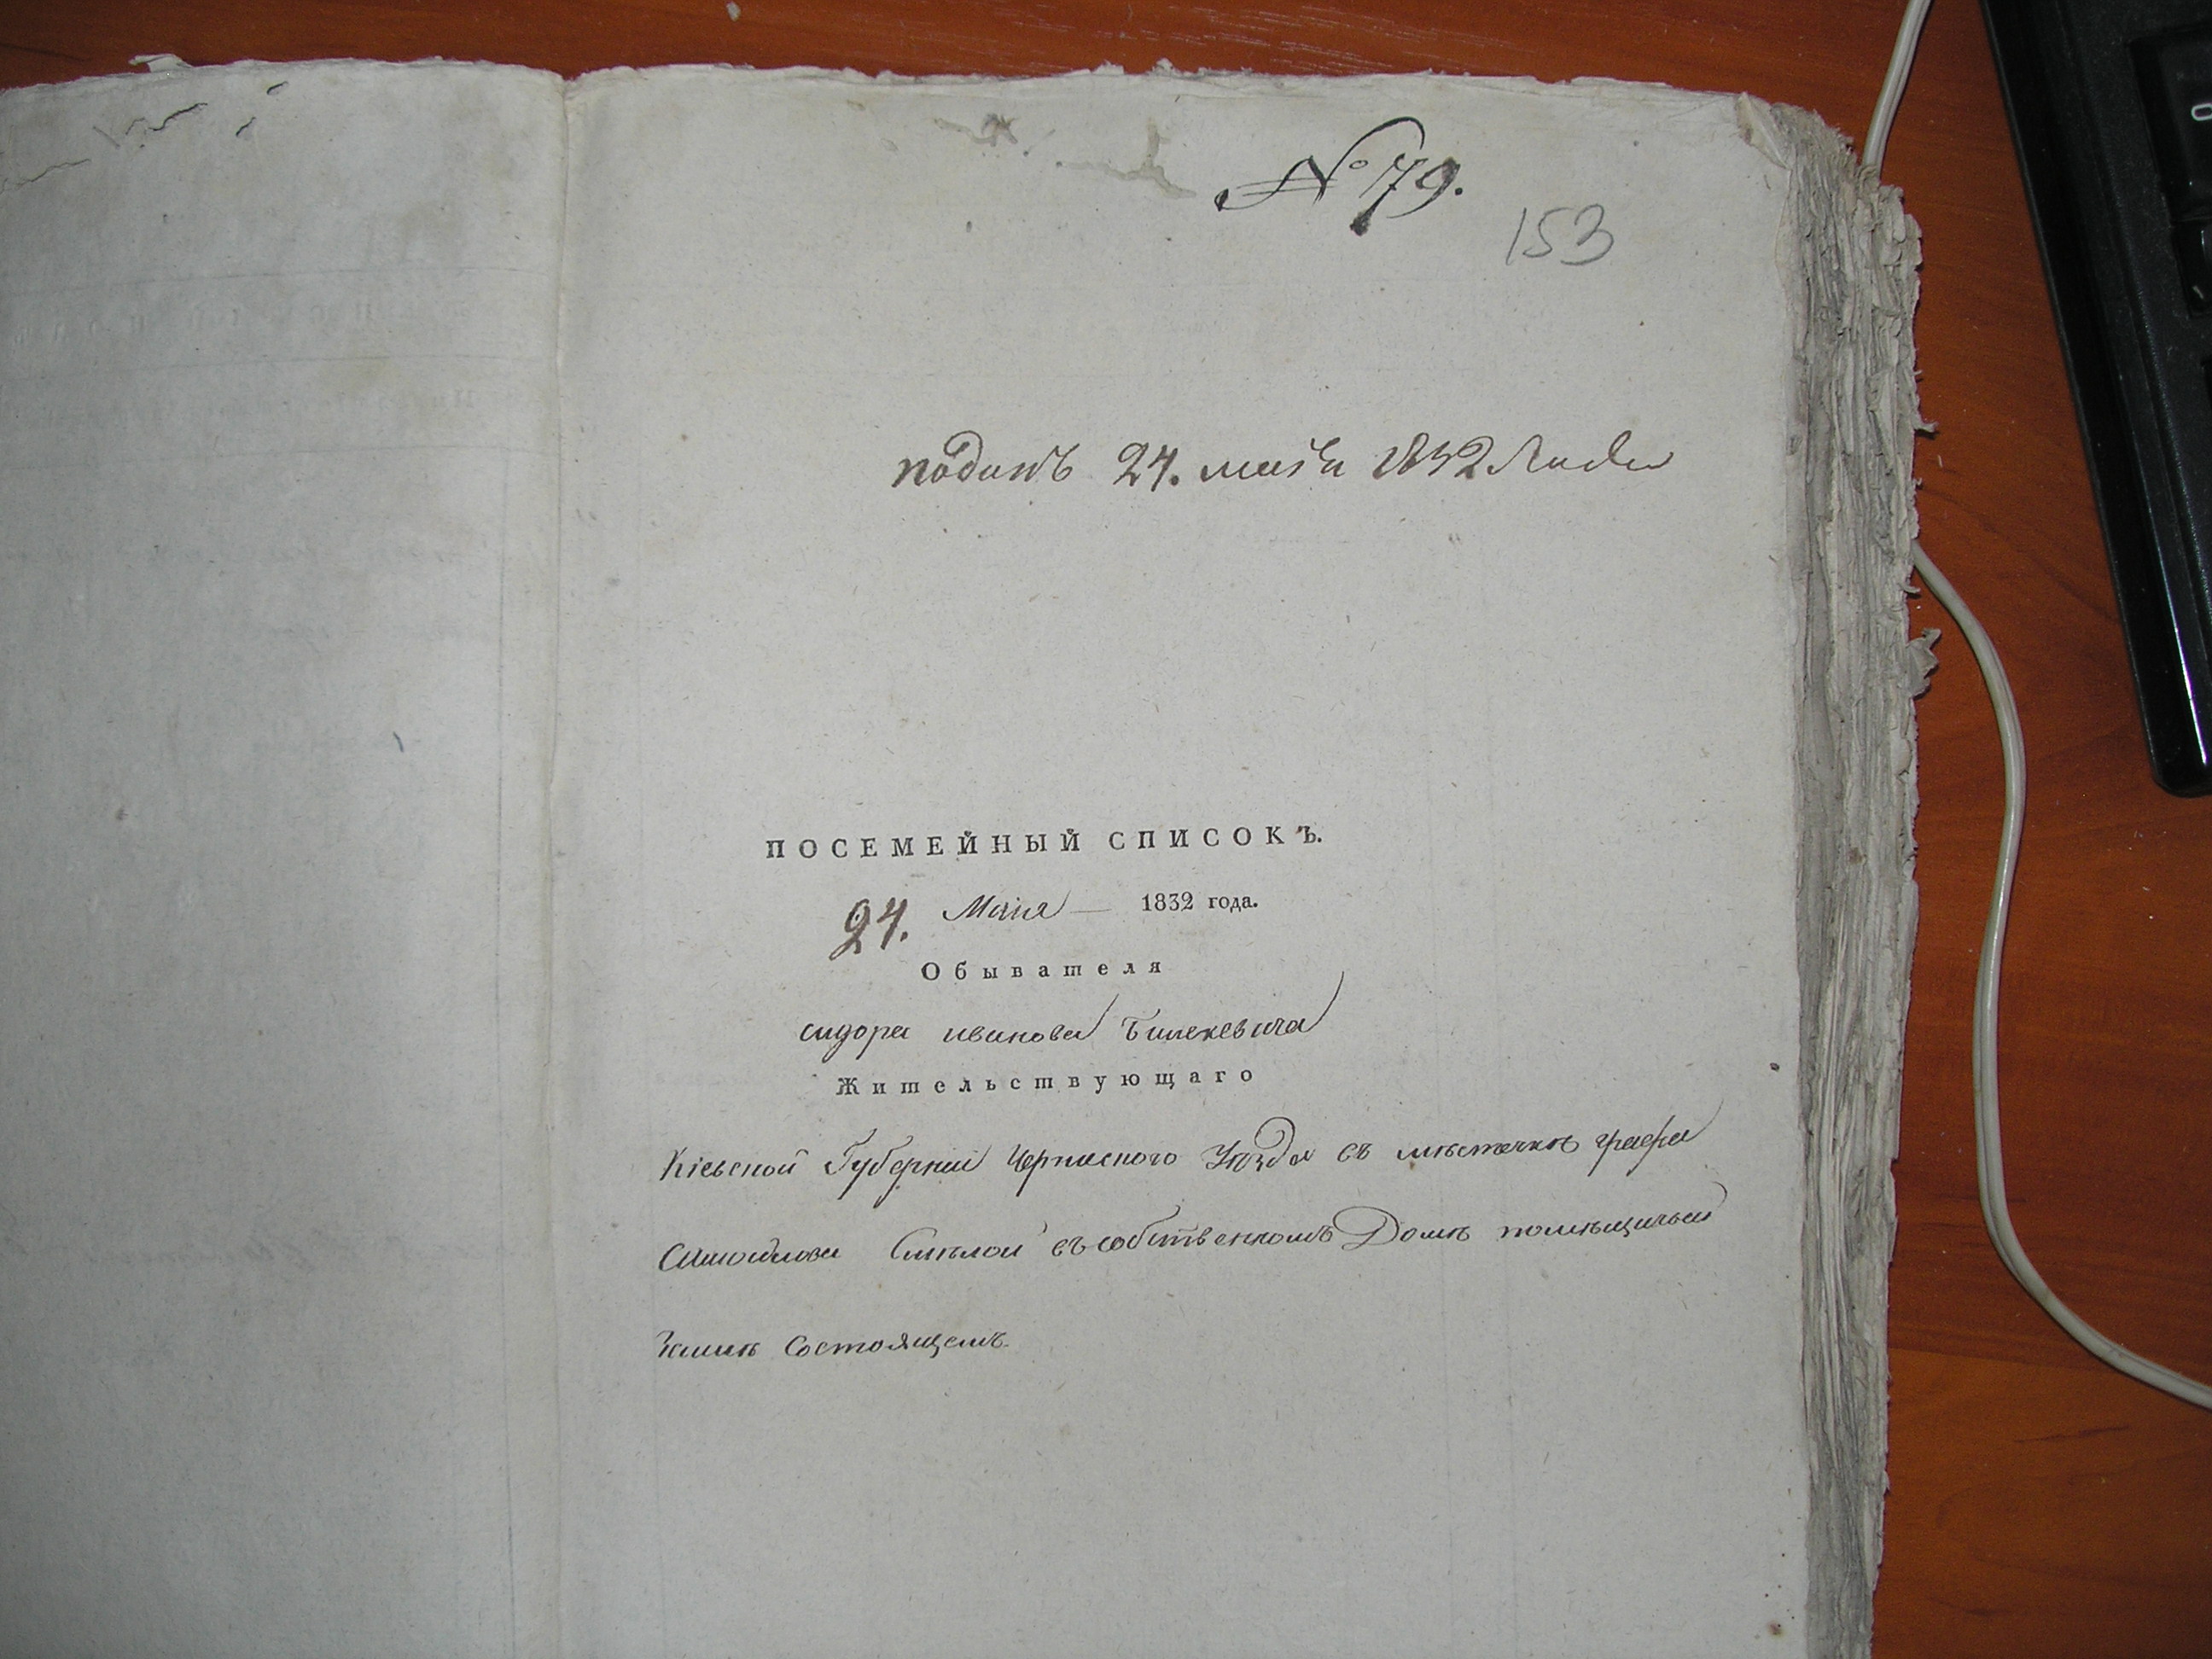 № 79.
153
поданъ 24. маія 1832 Года
ПОСЕМЕЙНЫЙ СПИСОКЪ.
24. Маія — 1832 года.
Обывателя
сидора иванова Билекевича
Жительствующаго
Кіевской Губерніи Черкаского Уѣзда въ мѣстечкѣ графа
Самойлова Смѣлой въ собственномъ Домѣ помѣщичьей
землѣ состоящемъ